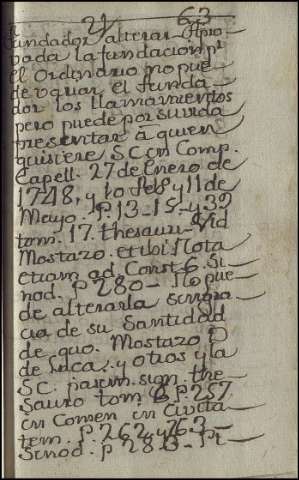 21 63
fundador alterar Apro
vada la fundacion pr
el Ordinario no pue
de vquar el funda
dor los llamamientos
pero puede por su vida
presentar á quien
quisiere S.C. in Comp.
Capell. 27 de Enero de
1748, y 10 feb y 11 de
Mayo. P. 13 - 15 - y 32
tom. 17. thesaur - Vid
Mostazo. et ibi Nota
etiam ad Const 6. Si
nod. p 280 - No pue
de alterarla sin gra
cia de su Santidad
de quo. Mostazo D
de Luca. y otros y la
SC. pasim. sign. the
sauro tom 6 p. 257
in Comen in Civita
tem. p. 262, y 763 -
Sinod. p 283 - Pr